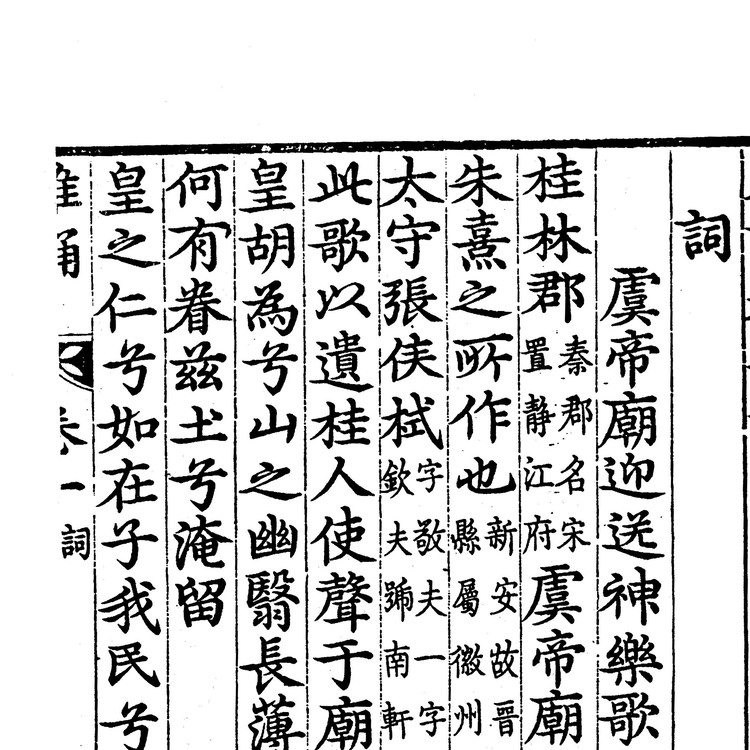 詞
虞帝廟迎送神樂歌
桂林郡秦郡名宋置静江府虞帝廟
朱熹之所作也新安故晋縣屬徽州
太守張侠栻字敬夫一字欽夫號南軒
此歌以遺桂人使聲于廟
皇胡為兮山之幽翳長薄
何有眷兹土兮淹留
皇之仁兮如在子我民兮
卷一 詞